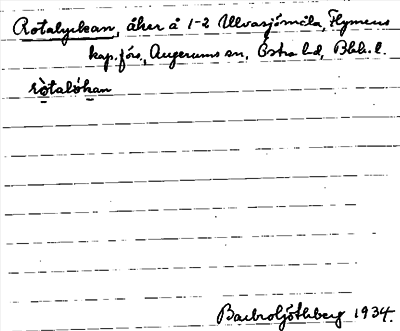 Rotalyckan, åker å 1-2 Ulvasjömåla, Flymens
kap.förs., Augerums sn, Östra hd, Blek. l.
ròtalókan
Barbro Göthberg 1934.